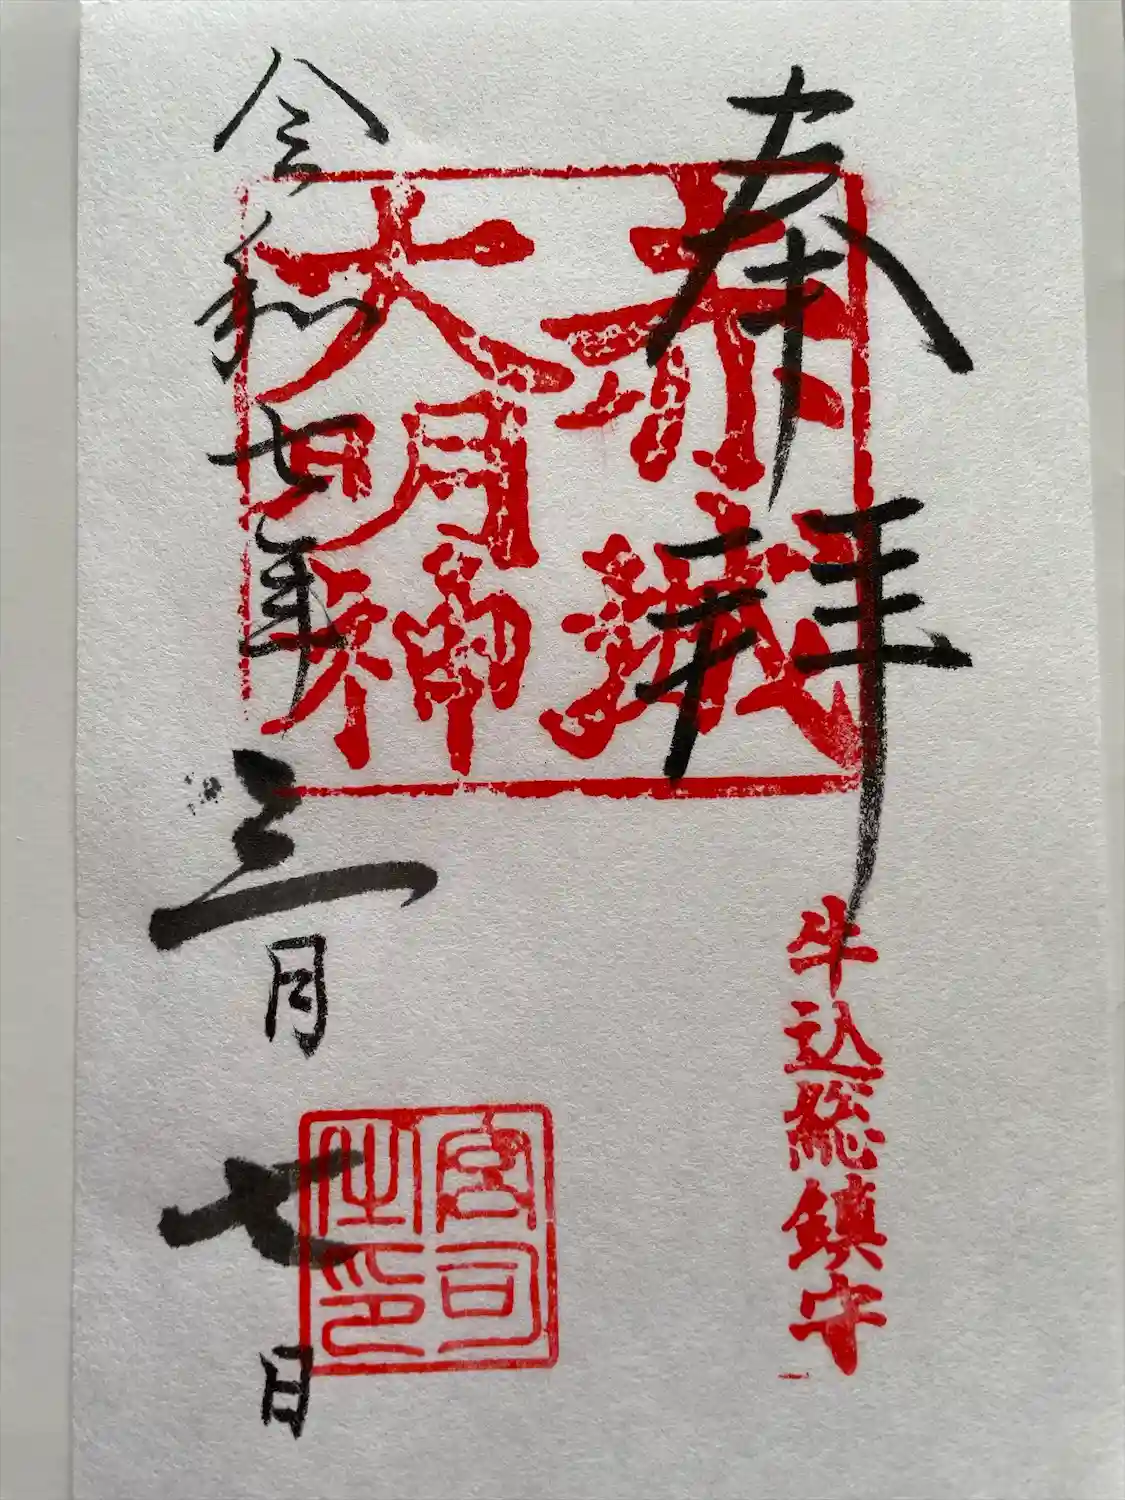 奉拝
赤城
大明神
牛込総鎮守
令和七年三月七日
宮司
之印